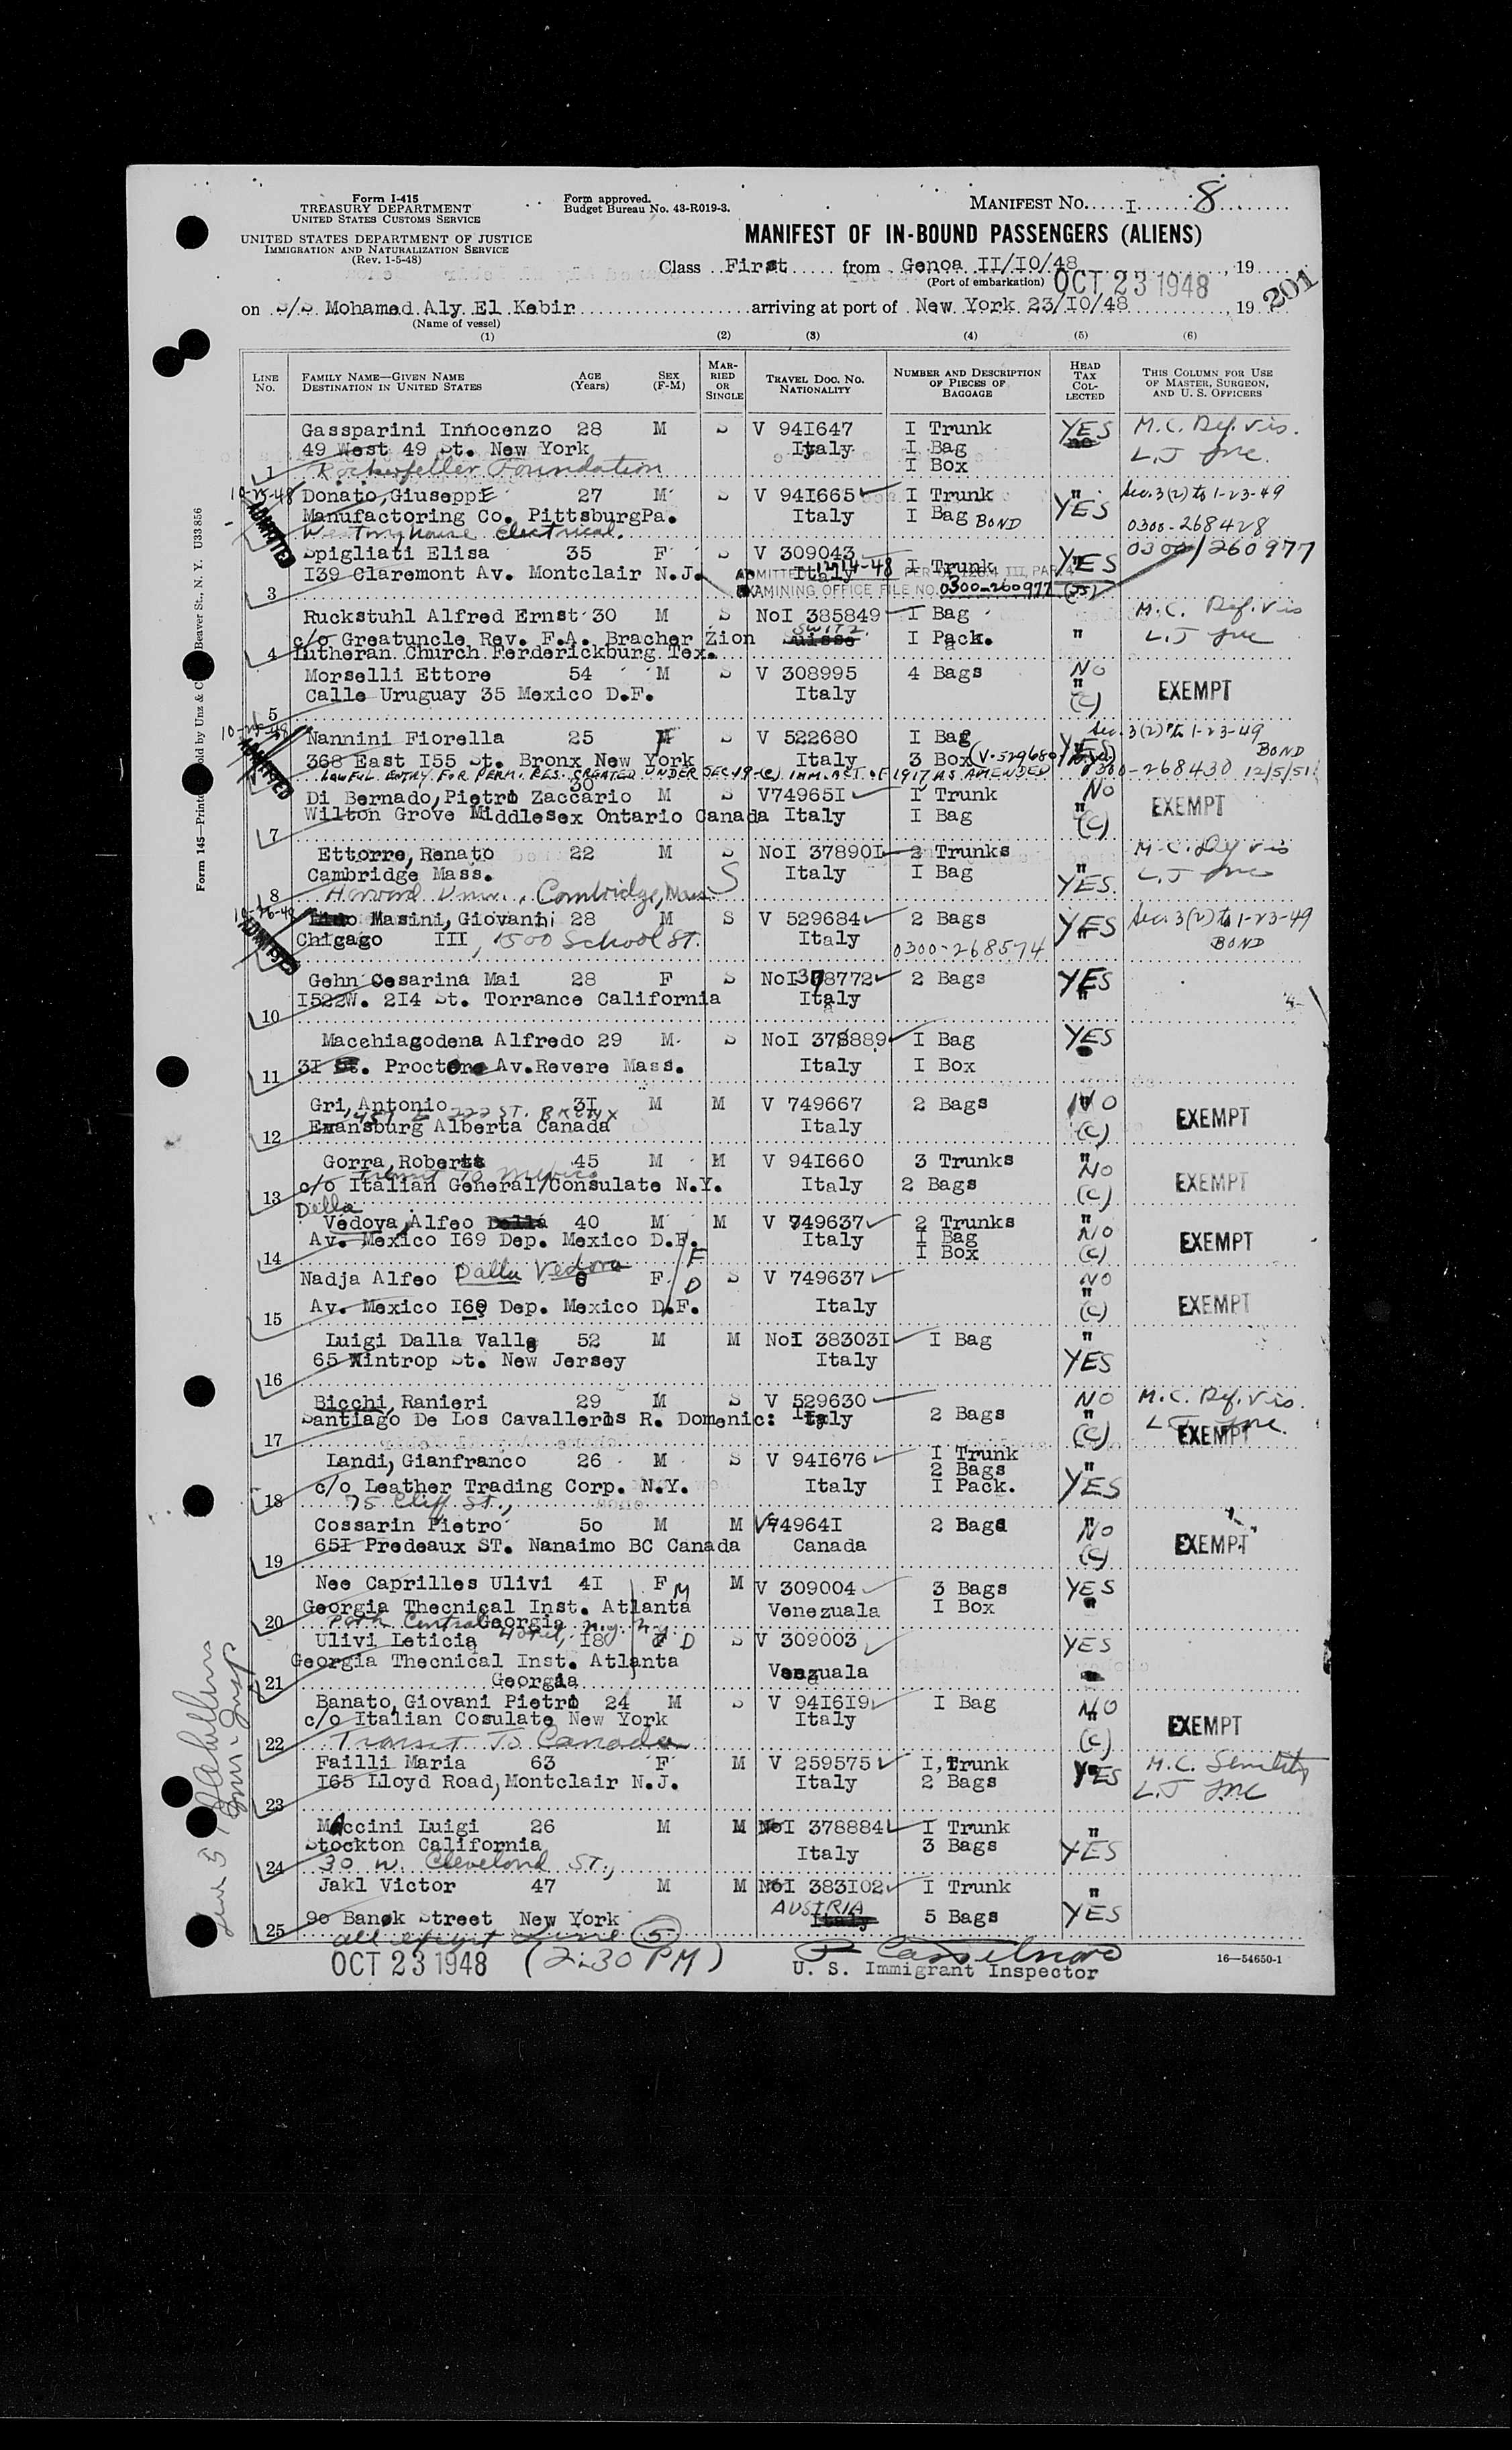 Form I-415
TREASURY DEPARTMENT
UNITED STATES CUSTOMS SERVICE
UNITED STATES DEPARTMENT OF JUSTICE
IMMIGRATION AND NATURALIZATION SERVICE
(Rev. 1-5-48)
Form approved.
Budget Bureau No. 43-R019-3.
MANIFEST NO. I 8
MANIFEST OF IN-BOUND PASSENGERS (ALIENS)
Class First from Genoa II/I0/48, 19
(Port of embarkation) OCT 23 1948
201
on S/S Mohamed Aly El Kebir arriving at port of New York 23/I0/48, 19
(Name of vessel)
(1) (2) (3) (4) (5) (6)
LINE NO. FAMILY NAME—GIVEN NAME DESTINATION IN UNITED STATES AGE (Years) SEX (F-M) MARRIED OR SINGLE TRAVEL DOC. NO. NATIONALITY NUMBER AND DESCRIPTION OF PIECES OF BAGGAGE HEAD TAX COLLECTED THIS COLUMN FOR USE OF MASTER, SURGEON, AND U. S. OFFICERS
Gassparini Innocenzo 28 M S V 94I647 I Trunk YES M.C. Def. Vis.
49 West 49 St. New York Italy I Bag L.J Inc.
1 Rockerfeller Foundation I Box
10-25-48 Donato, GiuseppE 27 M S V 94I665 I Trunk " YES Sec. 3(2) to 1-23-49
ADMITTED Manufactoring Co. PittsburgPa. Italy I Bag BOND 0300-268428
Westinghouse Electrical.
Spigliati Elisa 35 F S V 309043 I Trunk YES 0300/260977
I39 Claremont Av. Montclair N.J. Italy
ADMITTED 12-14-48
3 EXAMINING OFFICE FILE NO. 0300-260977
Ruckstuhl Alfred Ernst 30 M S NoI 385849 I Bag M.C. Def. Vis
c/o Greatuncle Rev. F.A. Bracher Zion SWITZ. I Pack. " L.J Inc
4 Lutheran Church Ferderickburg Tex.
Morselli Ettore 54 M S V 308995 4 Bags NO
Calle Uruguay 35 Mexico D.F. Italy " (C) EXEMPT
5
Nannini Fiorella 25 F S V 522680 I Bag YES Sec. 3(2) to 1-23-49
ADMITTED 368 East I55 St. Bronx New York Italy 3 Box BOND
LAWFUL ENTRY FOR PERM. RES. CREATED UNDER SEC. 19-(C) IMM. ACT OF 1917 AS AMENDED 0300-268430 12/5/51
Di Bernado, Pietro Zaccario 30 M S V74965I I Trunk NO
Wilton Grove Middlesex Ontario Canada Italy I Bag " (C) EXEMPT
7
Ettorre, Renato 22 M S NoI 37890I 2 Trunks M.C. Def Vis
Cambridge Mass. Italy I Bag " YES. L.J Inc
8 Harvard Univ., Cambridge, Mass. S
10-26-48 Masini, Giovani 28 M S V 529684 2 Bags YES Sec. 3(2) to 1-23-49
ADMITTED Chigago III, 1500 School St. Italy 0300-268574 BOND
Gehn Cesarina Mai 28 F S NoI378772 2 Bags YES
I522W. 2I4 St. Torrance California Italy "
10
Macchiagodena Alfredo 29 M S NoI 378889 I Bag YES
3I Proctor Av.Revere Mass. Italy I Box
11
Gri, Antonio 3I M M V 749667 2 Bags NO
Evansburg Alberta Canada Italy (C) EXEMPT
12
Gorra, Robert 45 M M V 94I660 3 Trunks " NO
Transit to Mexico
13 c/o Italian General/Consulate N.Y. Italy 2 Bags (C) EXEMPT
Della
Vedova, Alfeo 40 M M V 749637 2 Trunks " NO
Av. Mexico I69 Dep. Mexico D.F. Italy I Bag (C) EXEMPT
14 I Box
Nadja Alfeo Dalla Vedova 8 F S V 749637 NO
Av. Mexico I69 Dep. Mexico D.F. Italy " (C) EXEMPT
15
Luigi Dalla Valle 52 M M NoI 38303I I Bag "
65 Wintrop St. New Jersey Italy YES
16
Bicchi, Ranieri 29 M S V 529630 NO M.C. Def. Vis.
Santiago De Los Cavalleros R. Domenic: Italy 2 Bags " (C) L.J Inc. EXEMPT
17
Landi, Gianfranco 26 M S V 94I676 I Trunk "
2 Bags
c/o Leather Trading Corp. N.Y. Italy I Pack. YES
18 75 Cliff St.,
Cossarin Pietro 50 M M V74964I 2 Bags NO
65I Predeaux ST. Nanaimo BC Canada Canada (C) EXEMPT
19
Nee Caprilles Ulivi 4I F M M V 309004 3 Bags YES
Georgia Thecnical Inst. Atlanta Venezuala I Box "
20 Park Central Hotel, N.Y. N.Y. Georgia
Ulivi Leticia I8 F D S V 309003 YES
Georgia Thecnical Inst. Atlanta Venezuala
21 Georgia
Banato, Giovani Pietro 24 M S V 94I6I9 I Bag NO
c/o Italian Cosulate New York Italy " (C) EXEMPT
22 Transit To Canada
Failli Maria 63 F M V 259575 I Trunk YES M.C. Senility
I65 Lloyd Road, Montclair N.J. Italy 2 Bags L.J Inc
23
Maccini Luigi 26 M M NoI 378884 I Trunk "
Stockton California Italy 3 Bags YES
24 30 W. Cleveland ST.,
Jakl Victor 47 M M NoI 383I02 I Trunk "
AUSTRIA
90 Bank Street New York 5 Bags YES
25 all except Line (5)
OCT 23 1948 (2:30 PM)
U. S. Immigrant Inspector
16—54650-1
Line 5
Imm. Insp